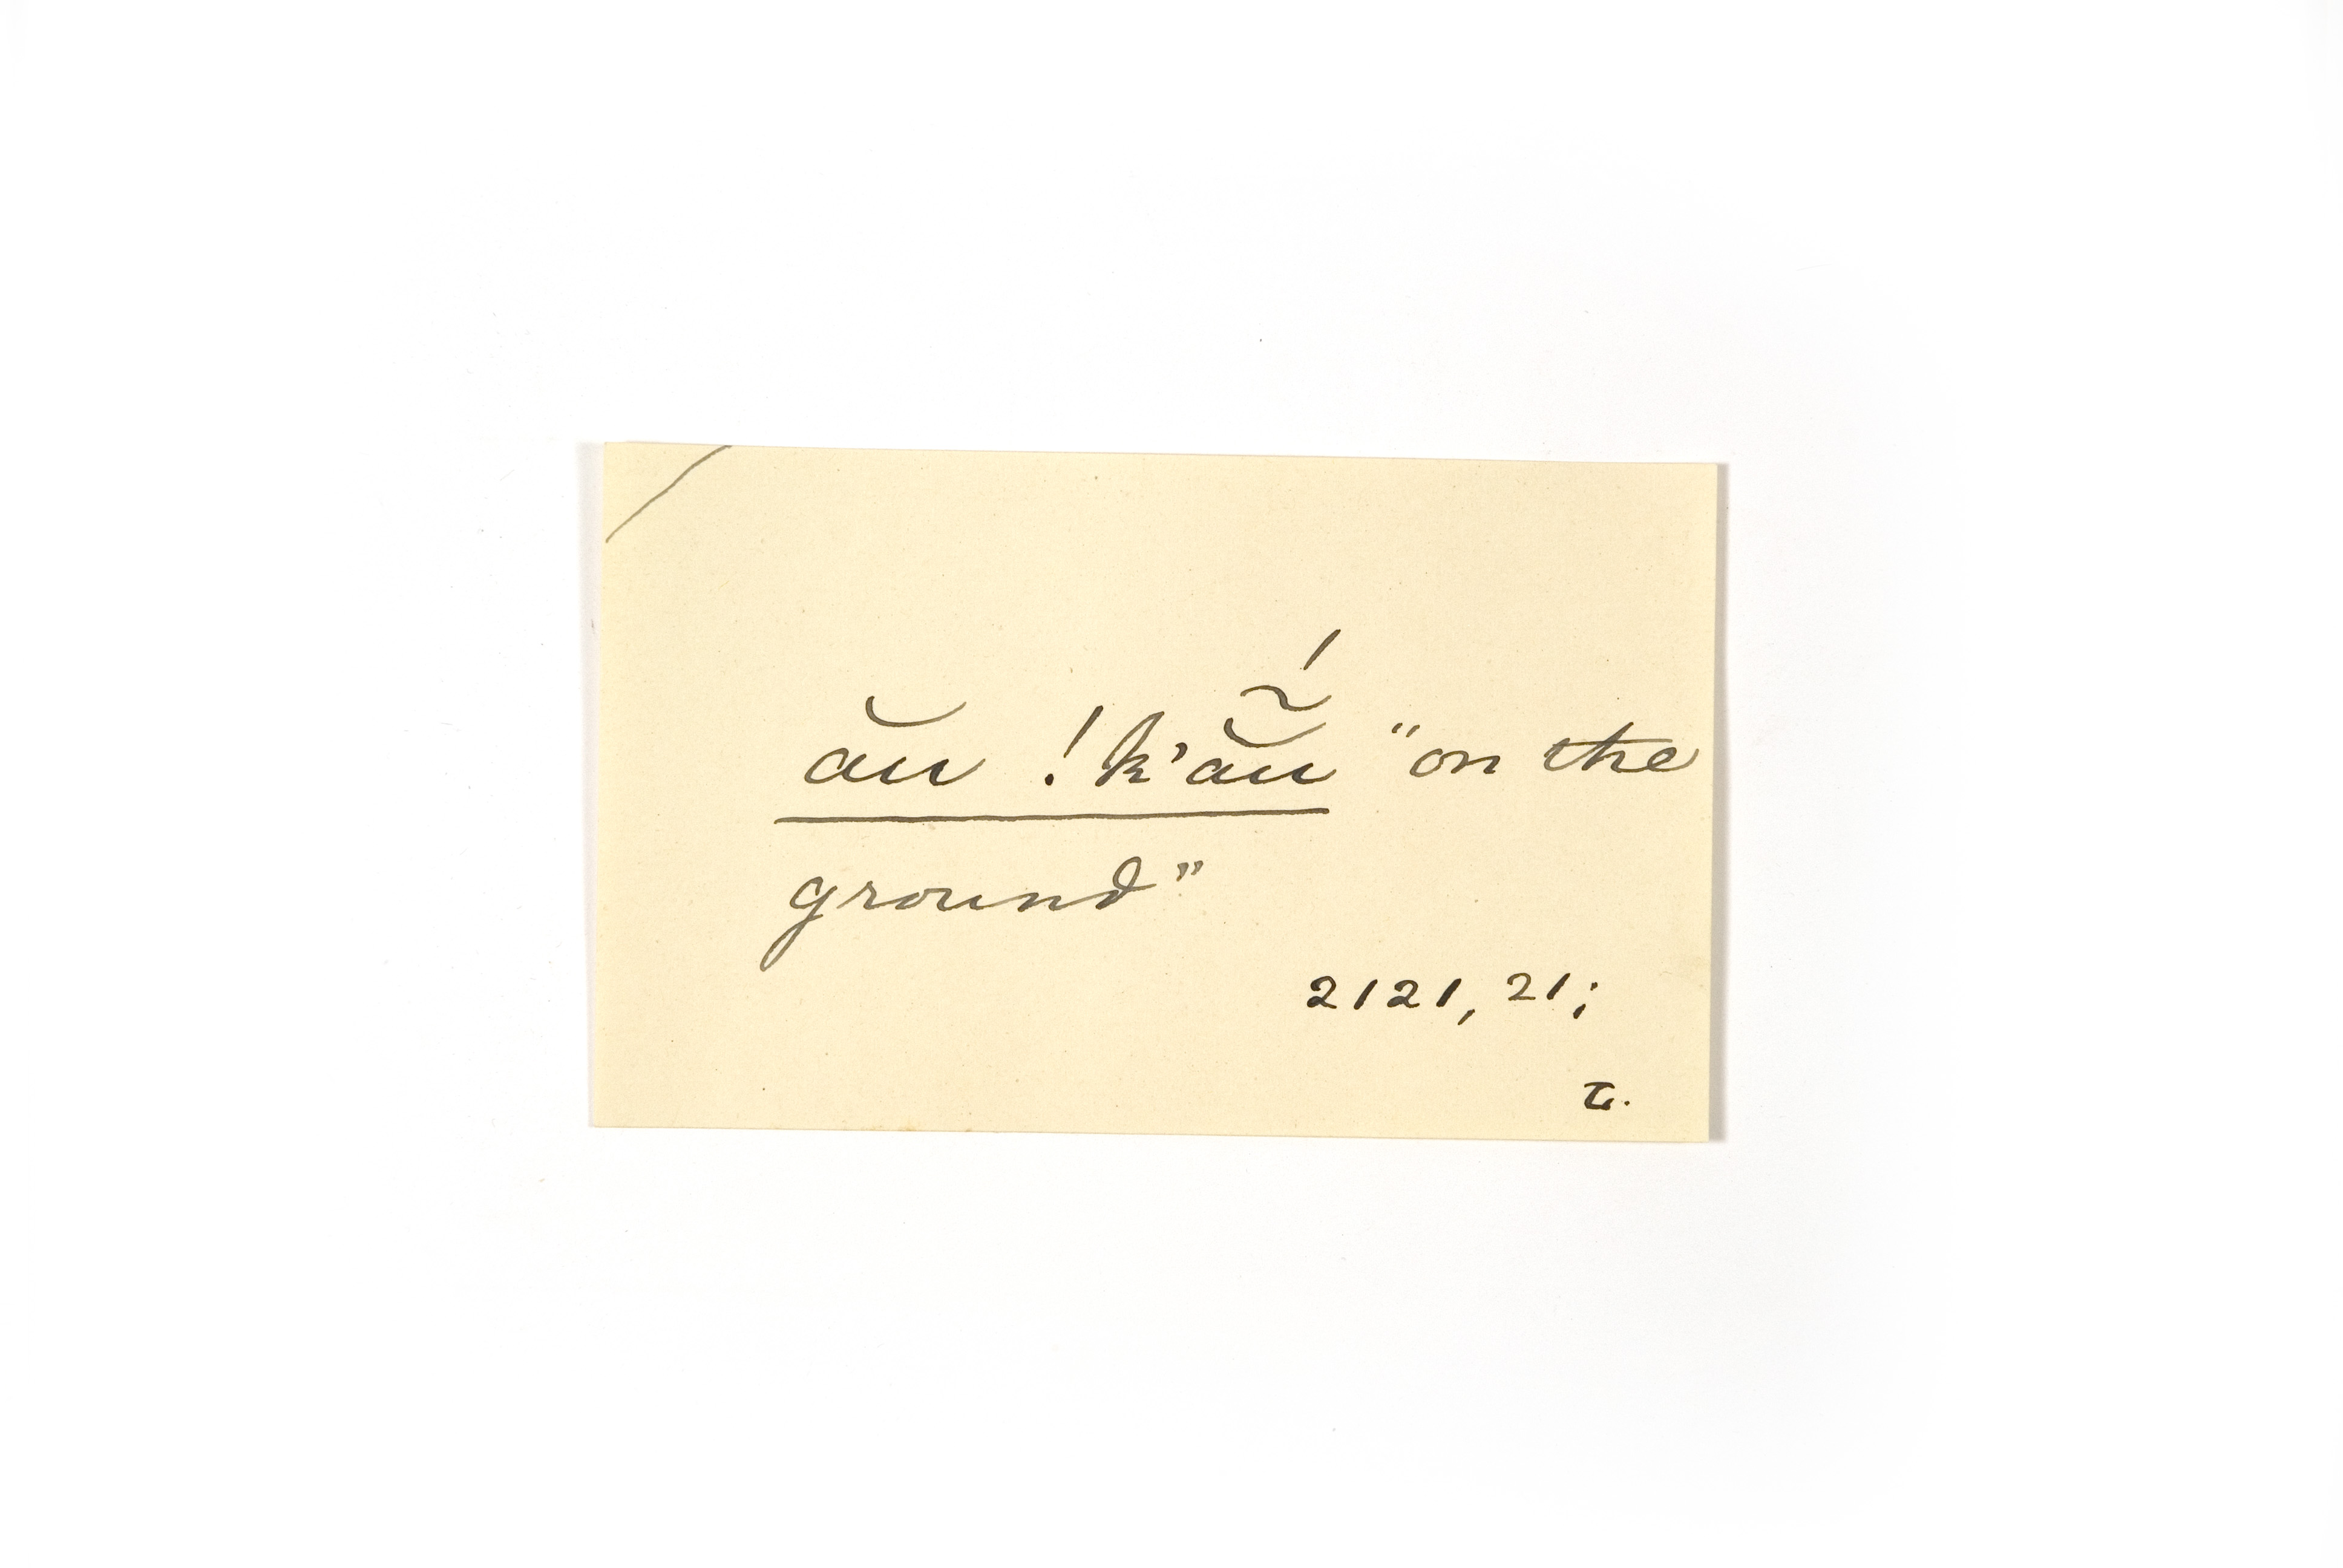 ău !k'ắ̃u "on the
ground"
2121, 21;